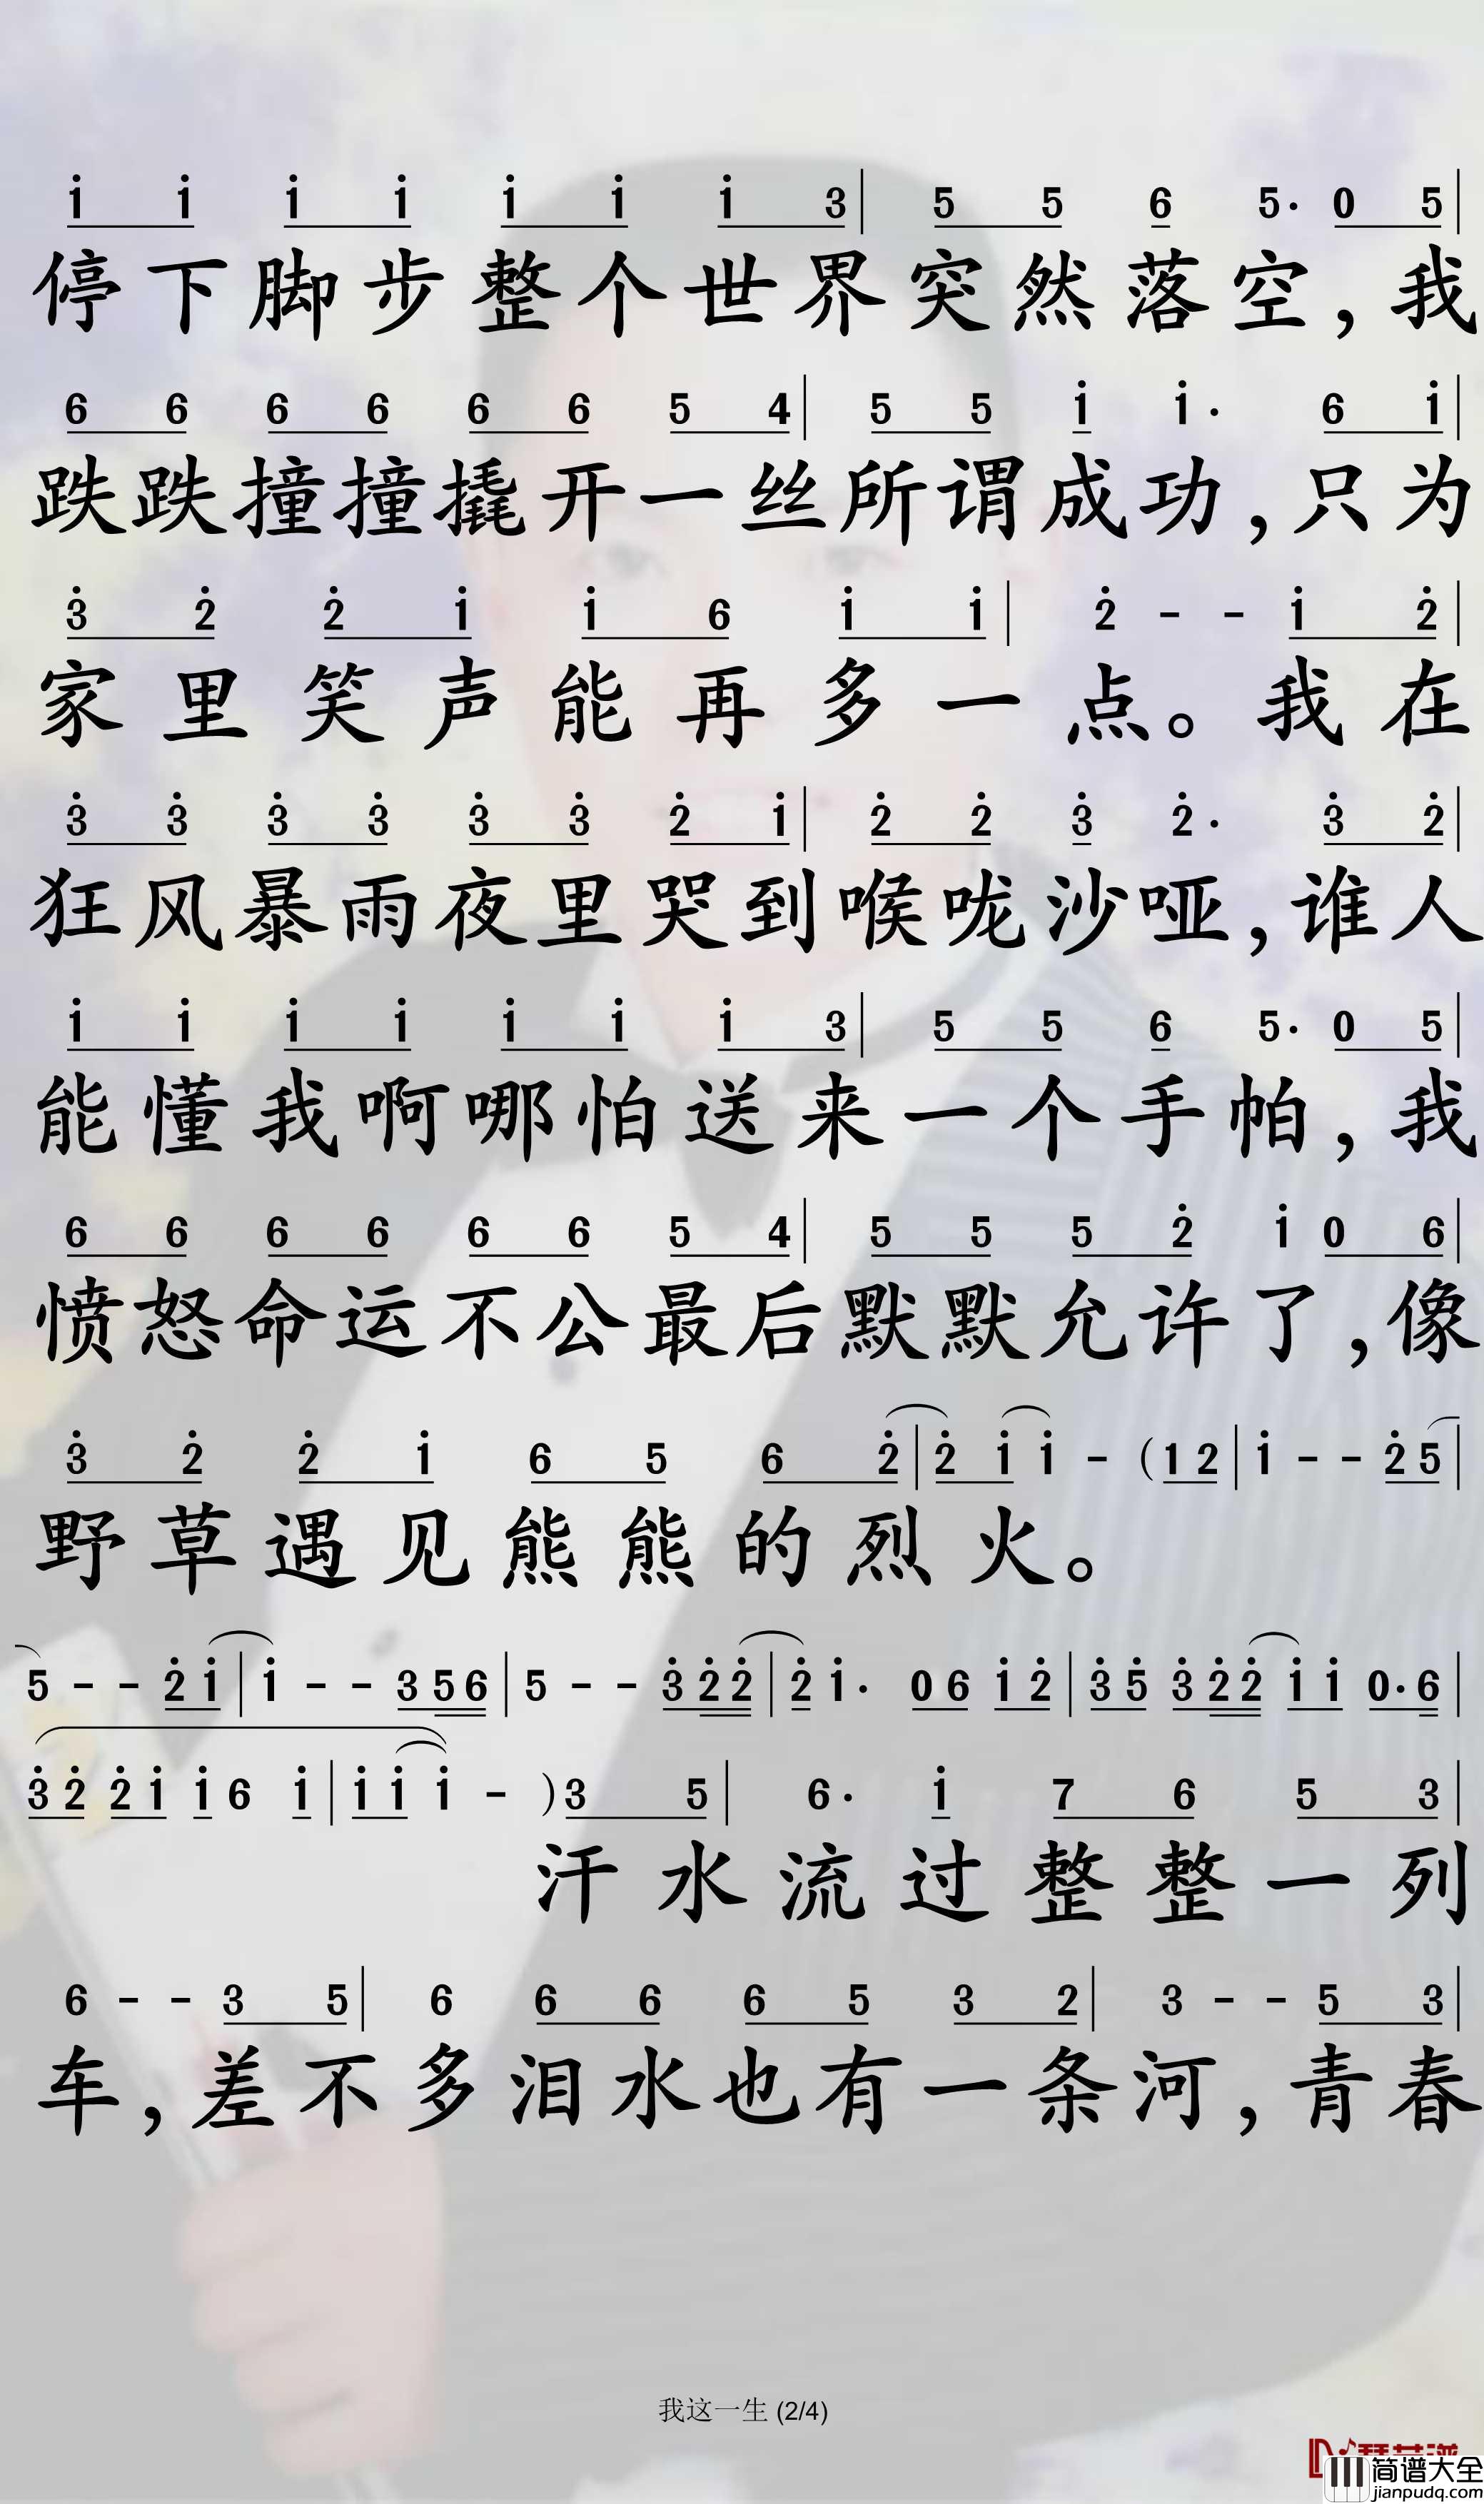 i i i i i i i 3| 5 5 6 5· 0 5|
停下脚步整个世界突然落空,我
6 6 6 6 6 6 5 4| 5 5 i i· 6 i|
跌跌撞撞撬开一丝所谓成功,只为
3̇ 2̇ 2̇ i i 6 i i| 2̇ - - i 2̇|
家里笑声能再多一点。我在
3̇ 3̇ 3̇ 3̇ 3̇ 3̇ 2̇ i| 2̇ 2̇ 3̇ 2̇· 3̇ 2̇|
狂风暴雨夜里哭到喉咙沙哑,谁人
i i i i i i i 3| 5 5 6 5· 0 5|
能懂我啊哪怕送来一个手帕,我
6 6 6 6 6 6 5 4| 5 5 5 2̇ i 0 6|
愤怒命运不公最后默默允许了,像
3̇ 2̇ 2̇ i 6 5 6 2̇| 2̇ i i - (1 2| i - - 2̇ 5|
野草遇见熊熊的烈火。
5 - - 2̇ i| i - - 3 5 6| 5 - - 3̇ 2̇ 2̇| 2̇ i· 0 6 i 2̇| 3̇ 5̇ 3̇ 2̇ 2̇ i i 0· 6|
3̇ 2̇ 2̇ i i 6 i| i i i - )3 5| 6· i 7 6 5 3|
汗水流过整整一列
6 - - 3 5| 6 6 6 6 5 3 2| 3 - - 5 3|
车,差不多泪水也有一条河,青春
我这一生 (2/4)
简谱大全
jianpudq.com